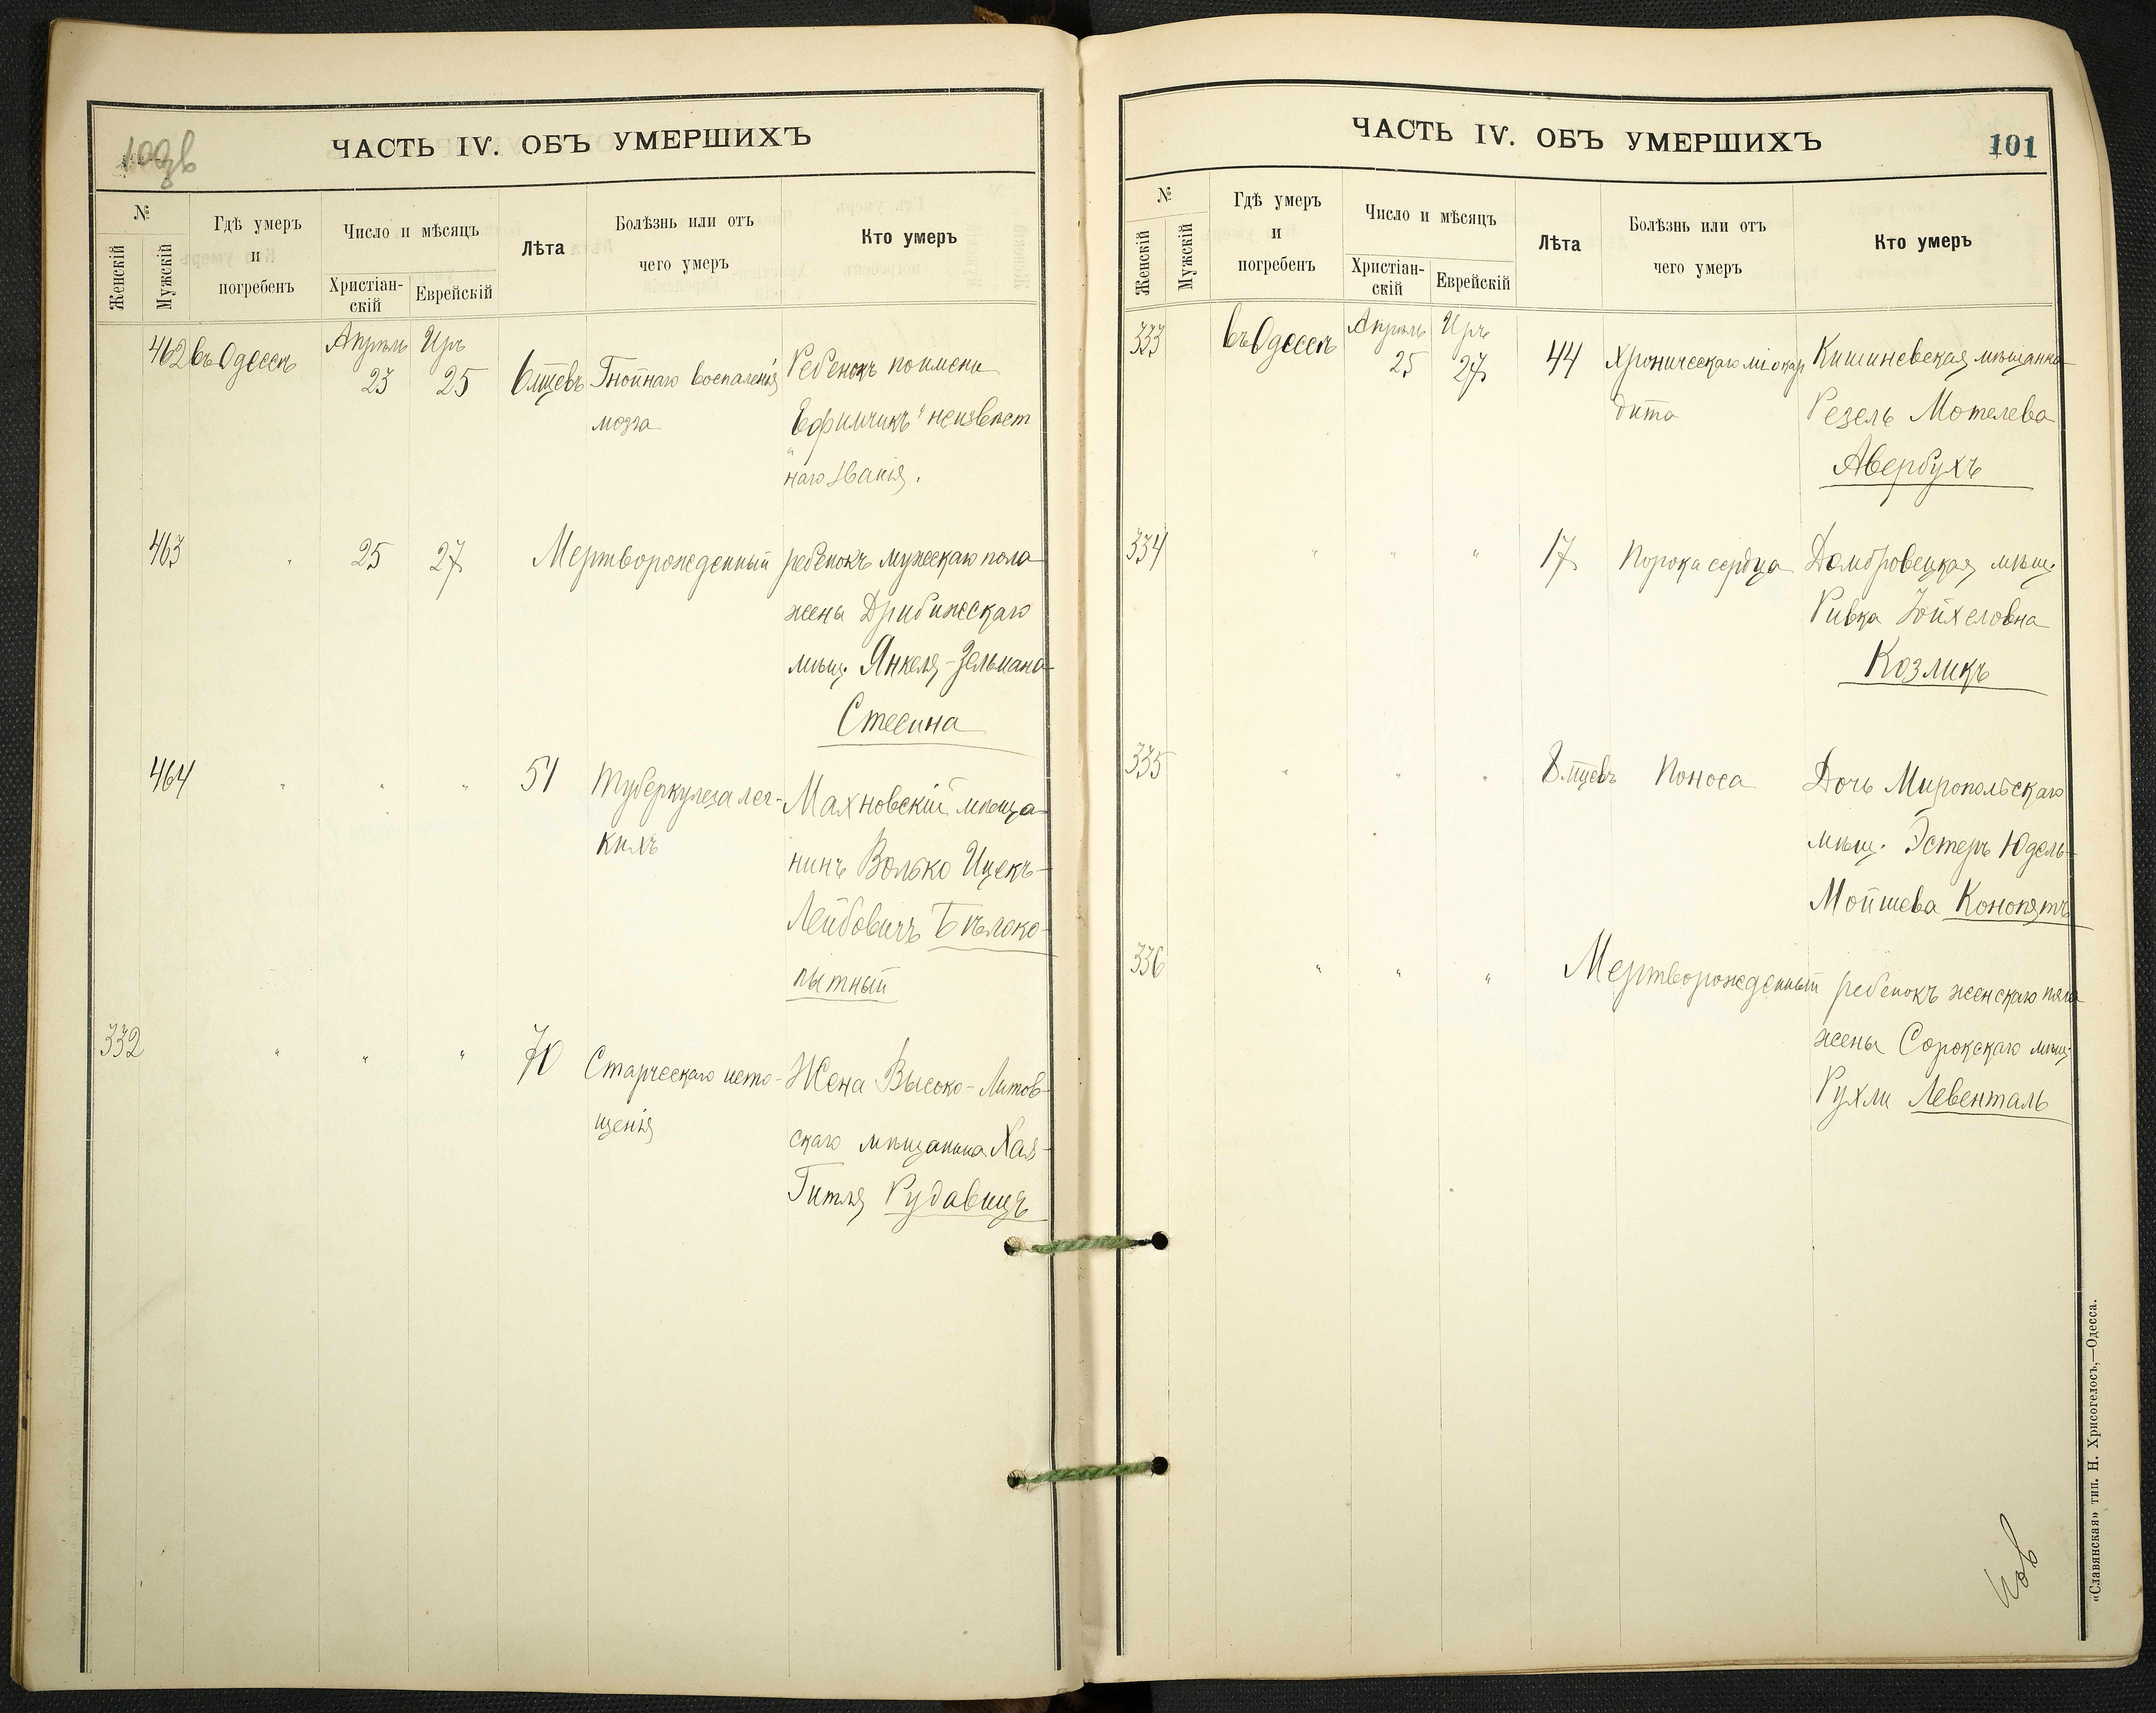 ЧАСТЬ IV. ОБЪ УМЕРШИХЪ
№
Женскій
Мужскій
Гдѣ умеръ
и
погребенъ
Число и мѣсяцъ
Христіан-
скій
Еврейскій
Лѣта
Болѣзнь или отъ
чего умеръ
Кто умеръ
462 въ Одессѣ Апрѣль Иръ
23 25 6 мцевъ Гнойнаго воспаленія Ребенокъ по имени
мозга "Ефимчикъ" неизвѣст
наго званія.
463 " 25 27 Мертворожденный ребенокъ мужескаго пола
жены Дрибинскаго
мѣщ. Янкеля-Зельмана
Стесина
464 " " " 51 Туберкулеза лег- Махновскій мѣща-
кихъ нинъ Волько Ицекъ-
Лейбовичъ Бѣлоко-
пытный
332 " " " 70 Старческаго исто- Жена Высоко-Литов-
щенія скаго мѣщанина Хая-
Гитля Рудавицъ
ЧАСТЬ IV. ОБЪ УМЕРШИХЪ
101
№
Женскій
Мужскій
Гдѣ умеръ
и
погребенъ
Число и мѣсяцъ
Христіан-
скій
Еврейскій
Лѣта
Болѣзнь или отъ
чего умеръ
Кто умеръ
333 въ Одессѣ Апрѣль Иръ
25 27 44 Хроническаго міокар Кишиневская мѣщанка
дита Резель Мотелева
Авербухъ
334 " " " 17 Порока сердца Домбровецкая мѣщ.
Ривка Іойхеловна
Козликъ
335 " " " 8 мцевъ Поноса Дочь Миропольскаго
мѣщ. Эстеръ Юдель-
Мойшева Конопятъ
336 " " " Мертворожденный ребенокъ женскаго пола
жены Сорокскаго мѣщ.
Рухли Левенталь
«Славянская» тип. Н. Хрисогелосъ,—Одесса.